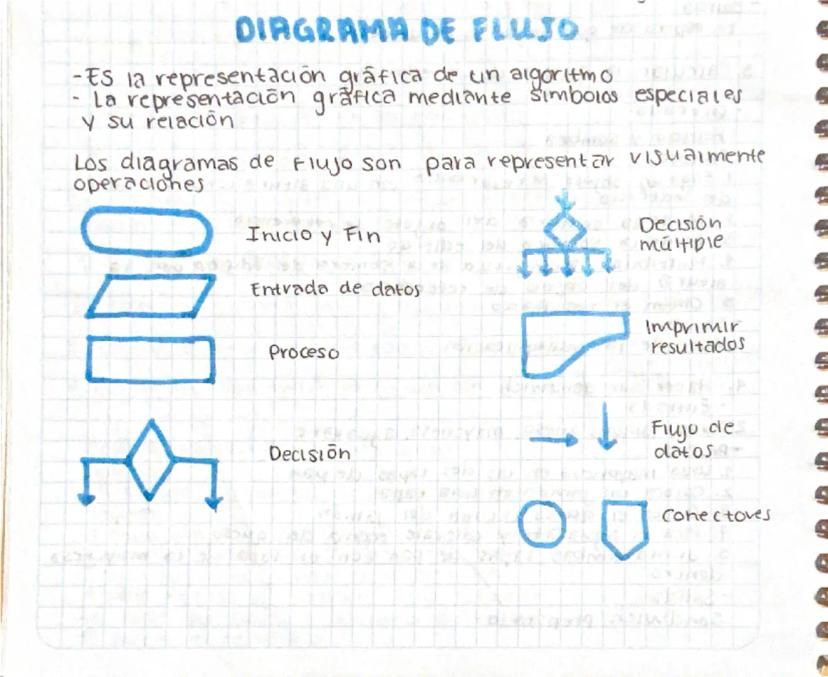 DIAGRAMA DE FLUJO
- Es la representación gráfica de un algoritmo
- La representación gráfica mediante simbolos especiales
y su relación
Los diagramas de flujo son para representar visualmente
operaciones
Inicio y Fin
Entrada de datos
Proceso
Decisión
Decisión
múltiple
Imprimir
resultados
Flujo de
datos
Conectores